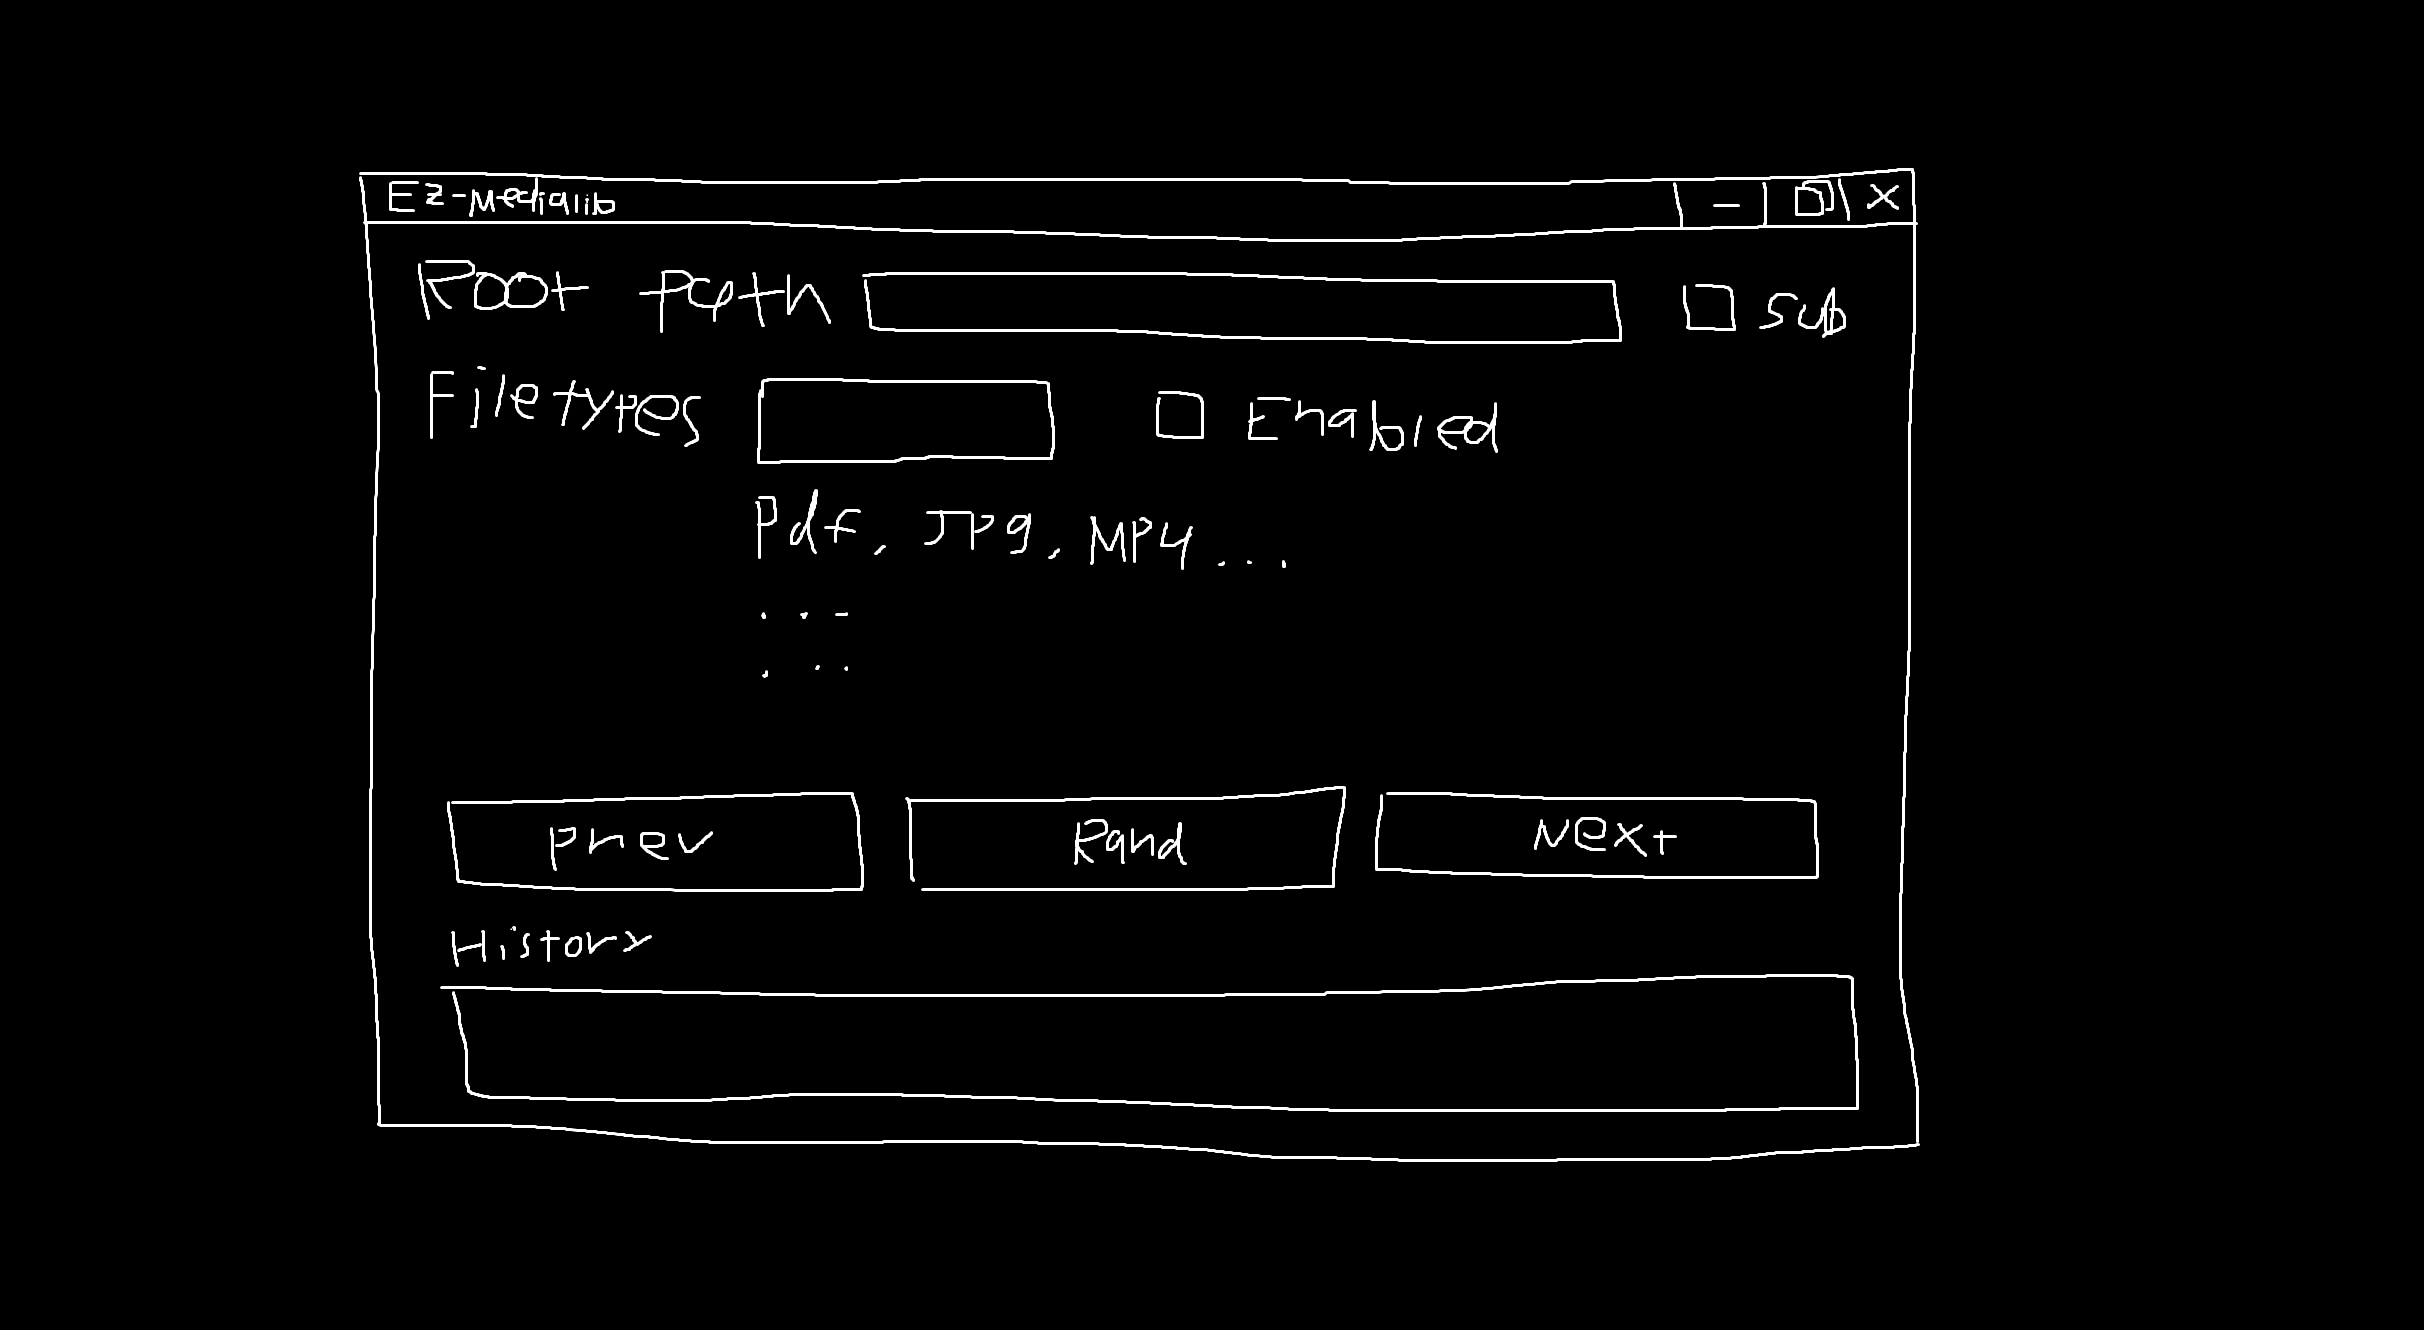 Ez-Medialib
Root path sub
Filetypes Enabled
Pdf, JPg, MP4...
...
...
Prev Rand Next
History